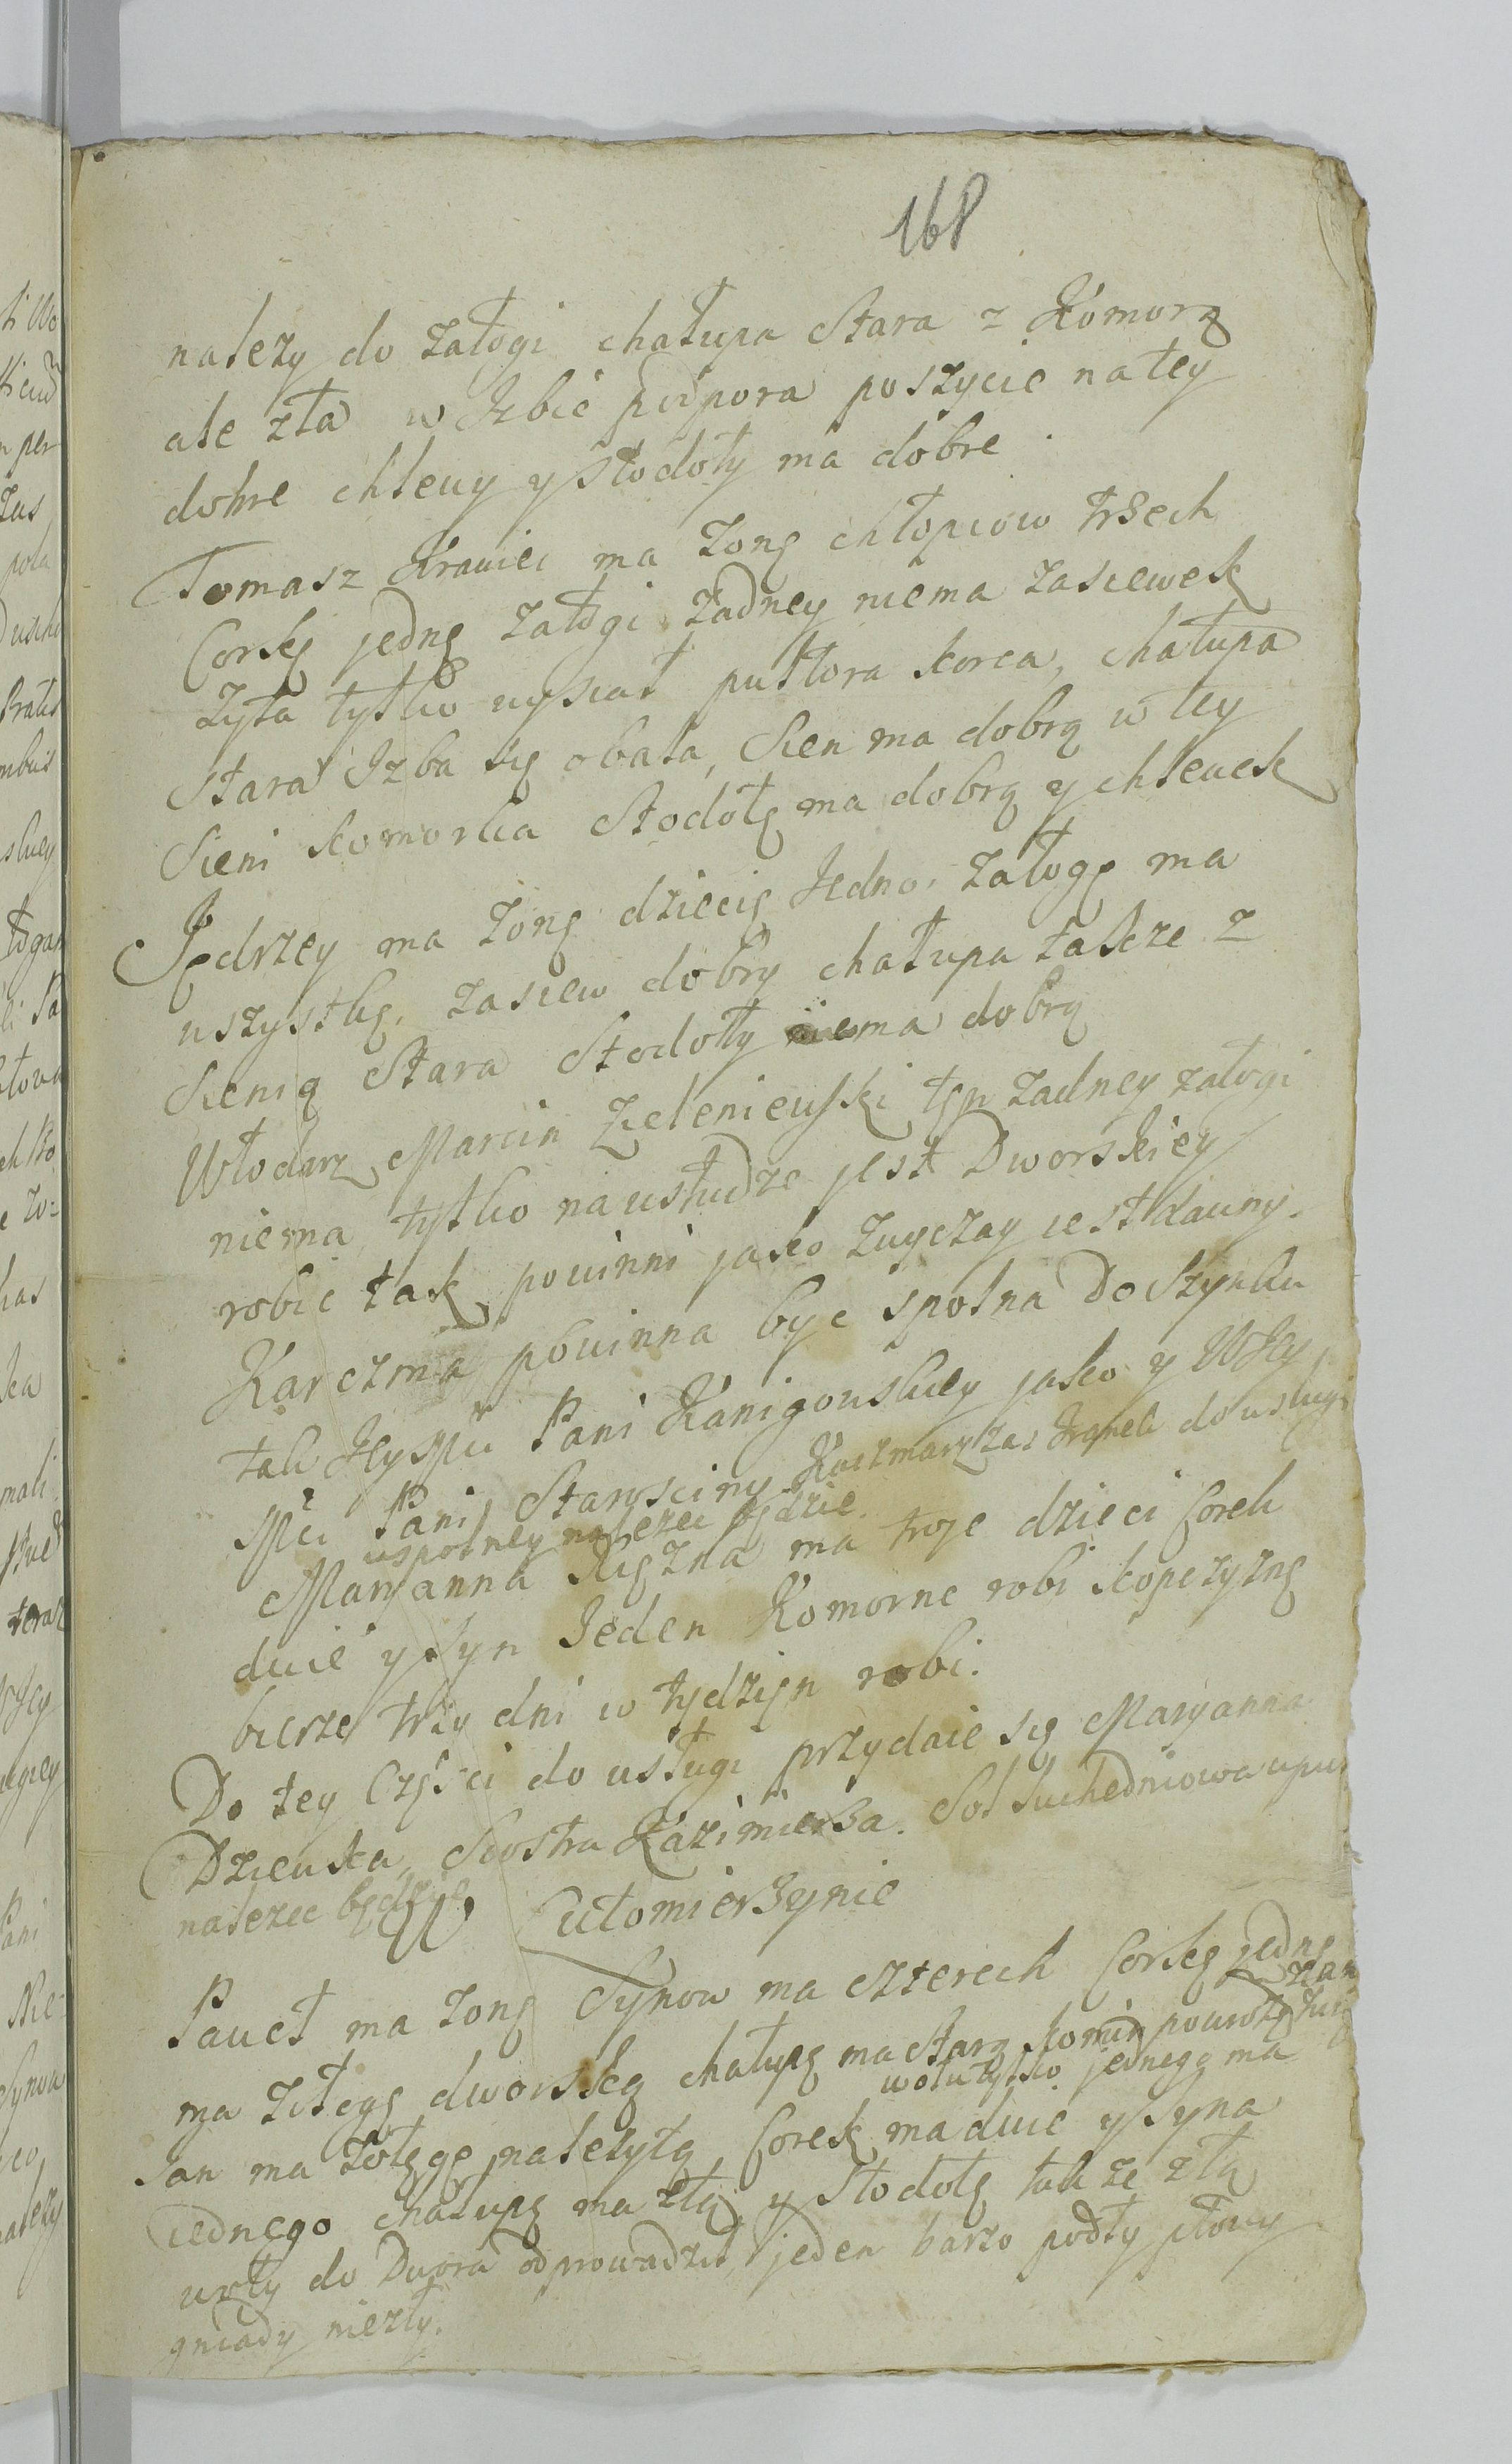 168
należy do załogi chałupa stara z Komorą
ale zła w Izbie podpora poszycie na tey
dobre chlewy y stodoły ma dobre
Tomasz Krawiec ma żonę chłopcow trzech
Corkę jednę załogi żadney niema zasiewek
żyta tylko wysiał pułtora korca, chałupa
stara Izba się obala, Sien ma dobrą w tey
Sieni komorka Stodołę ma dobrą y chlewek
Jędrzey ma żonę dziecię Jedno załogę ma
wszystkę, zasiew dobry chałupa takze z
Sienią Stara Stodoły niema dobrą
Włodarz Marcin Zieleniewski ten żadney załogi
niema tylko na usłudze jest Dworskiey
robic tak powinni jako zwyczay iest dawny.
Karczma powinna byc spolna Do Szynku
tak Jey Mci Pani Kanigowskiey jako y WJey
Mci Pani Starosciny Karczmarz zas Franek do usługi
uspolney nalezec będzie.
Maryanna Księżna ma troje dzieci Corek
dwie y syn Jeden Komorne robi kopczyznę
bierze trzy dni w tydzien robi.
Do tey Części do usługi przydaie się Maryanna
Dziewka, Siostra Kazimierza. Sol suchedniowa
nalezec będzie W Lutomierzynie
Paweł ma żonę Synow ma czterech Corkę jednę
ma załogę dworską chałupę ma starą komin
wołu tylko jednego ma
Jan ma załogę należytą Corek ma dwie y syna
iednego chałupę ma złą y stodołę takze złą
woły do Dwora odprowadził jeden barzo podły płowy
gniady niezły.